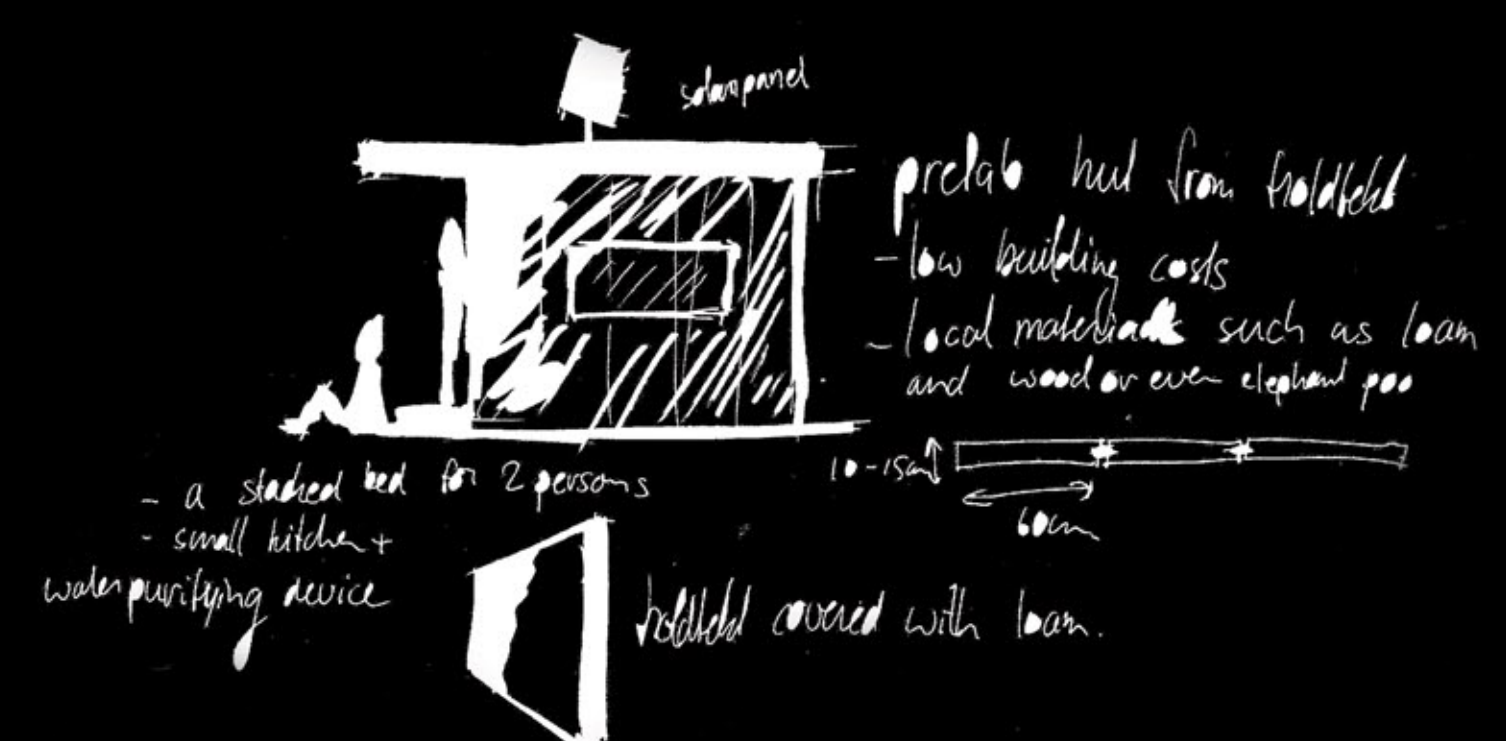 solarpanel
prefab hut from
- low building costs
- local materials such as loam
and wood or even elephant poo
10-15cm
60cm
- a stacked bed for 2 persons
- small kitchen +
waterpurifying device
covered with loam.